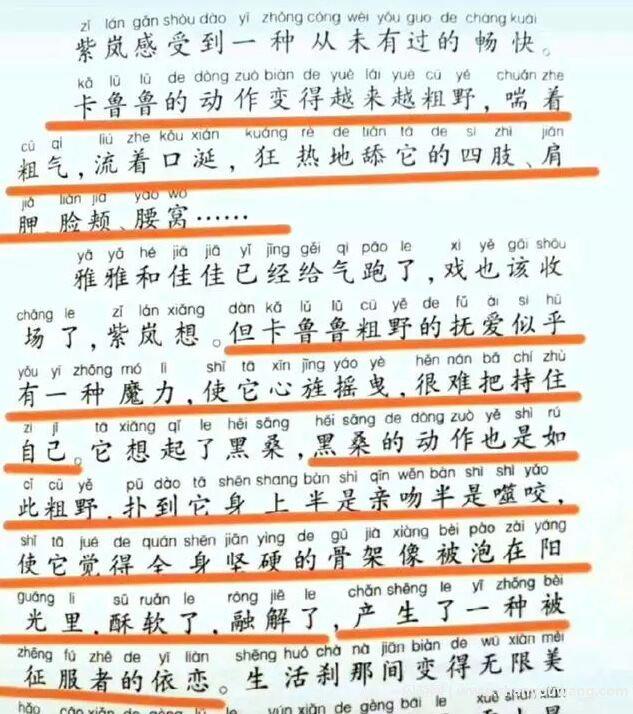 zǐ lán gǎn shòu dào yī zhǒng cóng wèi yǒu guo de chàng kuài
紫岚感受到一种从未有过的畅快。
kǎ lǔ lǔ de dòng zuò biàn de yuè lái yuè cū yě chuǎn zhe
卡鲁鲁的动作变得越来越粗野,喘着
cū qì liú zhe kǒu xián kuáng rè de tiǎn tā de sì zhī jiān
粗气,流着口涎,狂热地舔它的四肢、肩
jiǎ liǎn jiá yāo wō
胛、脸颊、腰窝……
yǎ yǎ hé jiā jiā yǐ jīng gěi qì pǎo le xì yě gāi shōu
雅雅和佳佳已经给气跑了,戏也该收
chǎng le zǐ lán xiǎng dàn kǎ lǔ lǔ cū yě de fǔ ài sì hū
场了,紫岚想。但卡鲁鲁粗野的抚爱似乎
yǒu yī zhǒng mó lì shǐ tā xīn jīng yáo yè hěn nán bǎ chí zhù
有一种魔力,使它心旌摇曳,很难把持住
zì jǐ tā xiǎng qǐ le hēi sāng hēi sāng de dòng zuò yě shì rú
自己。它想起了黑桑,黑桑的动作也是如
cǐ cū yě pū dào tā shēn shang bàn shì qīn wěn bàn shì shì yǎo
此粗野,扑到它身上半是亲吻半是噬咬,
shǐ tā jué de quán shēn jiān yìng de gǔ jià xiàng bèi pào zài yáng
使它觉得全身坚硬的骨架像被泡在阳
guāng li sū ruǎn le róng jiě le chǎn shēng le yī zhǒng bèi
光里,酥软了,融解了,产生了一种被
zhēng fú zhě de yī liàn shēng huó chà nà jiān biàn de wú xiàn měi
征服者的依恋。生活刹那间变得无限美